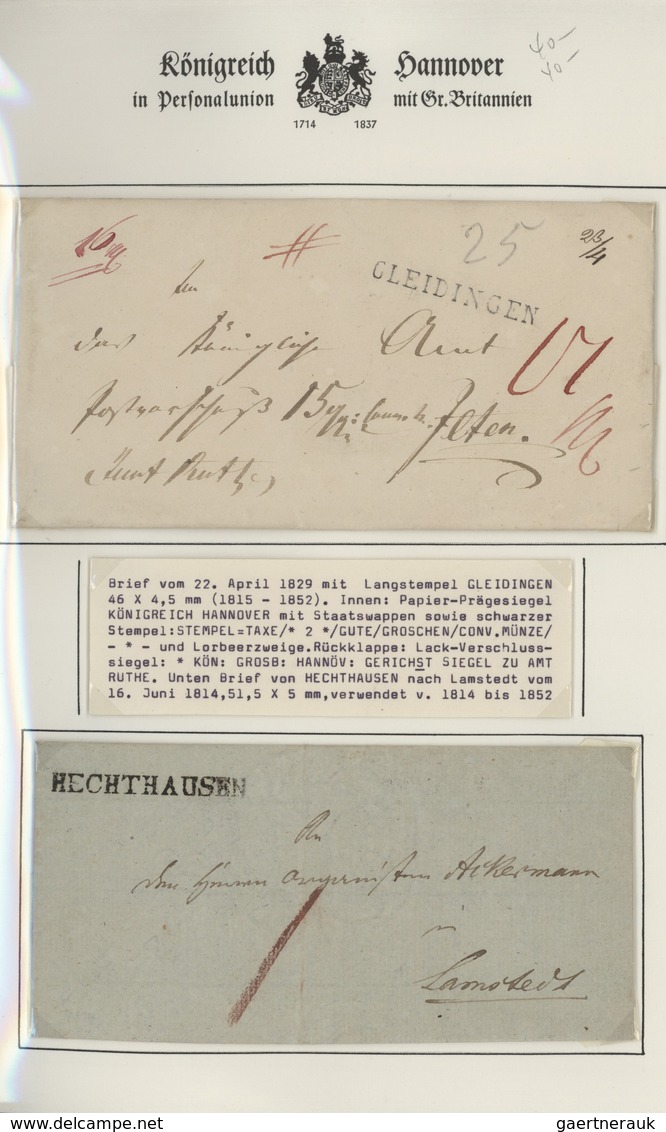 Königreich Hannover
in Personalunion mit Gr. Britannien
1714 1837
40-
40-
25
23/4
GLEIDINGEN
An
das Königliche Amt
Postvorschuß 15
Ilten.
Amt Ruthe
Brief vom 22. April 1829 mit Langstempel GLEIDINGEN
46 X 4,5 mm (1815 - 1852). Innen: Papier-Prägesiegel
KÖNIGREICH HANNOVER mit Staatswappen sowie schwarzer
Stempel:STEMPEL=TAXE/* 2 */GUTE/GROSCHEN/CONV.MÜNZE/
- * - und Lorbeerzweige.Rückklappe: Lack-Verschluss-
siegel: * KÖN: GROSB: HANNÖV: GERICHST SIEGEL ZU AMT
RUTHE. Unten Brief von HECHTHAUSEN nach Lamstedt vom
16. Juni 1814,51,5 X 5 mm,verwendet v. 1814 bis 1852
HECHTHAUSEN
An
den Herren Organisten Ackermann
Lamstedt
delcampe.net
gaertnerauk